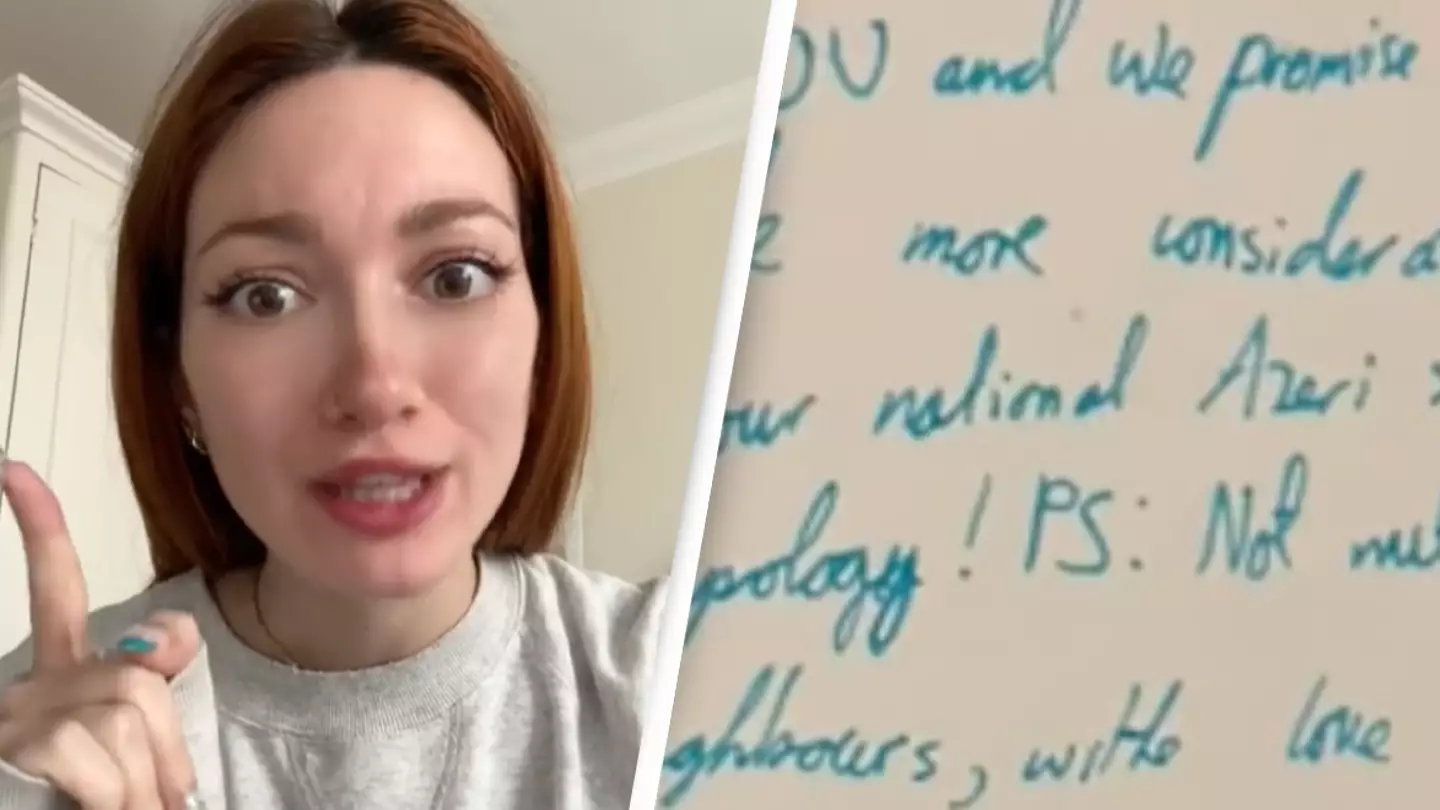 OU and we promise
more considera
our national Azeri
pology! PS: Not
ghbours, with love